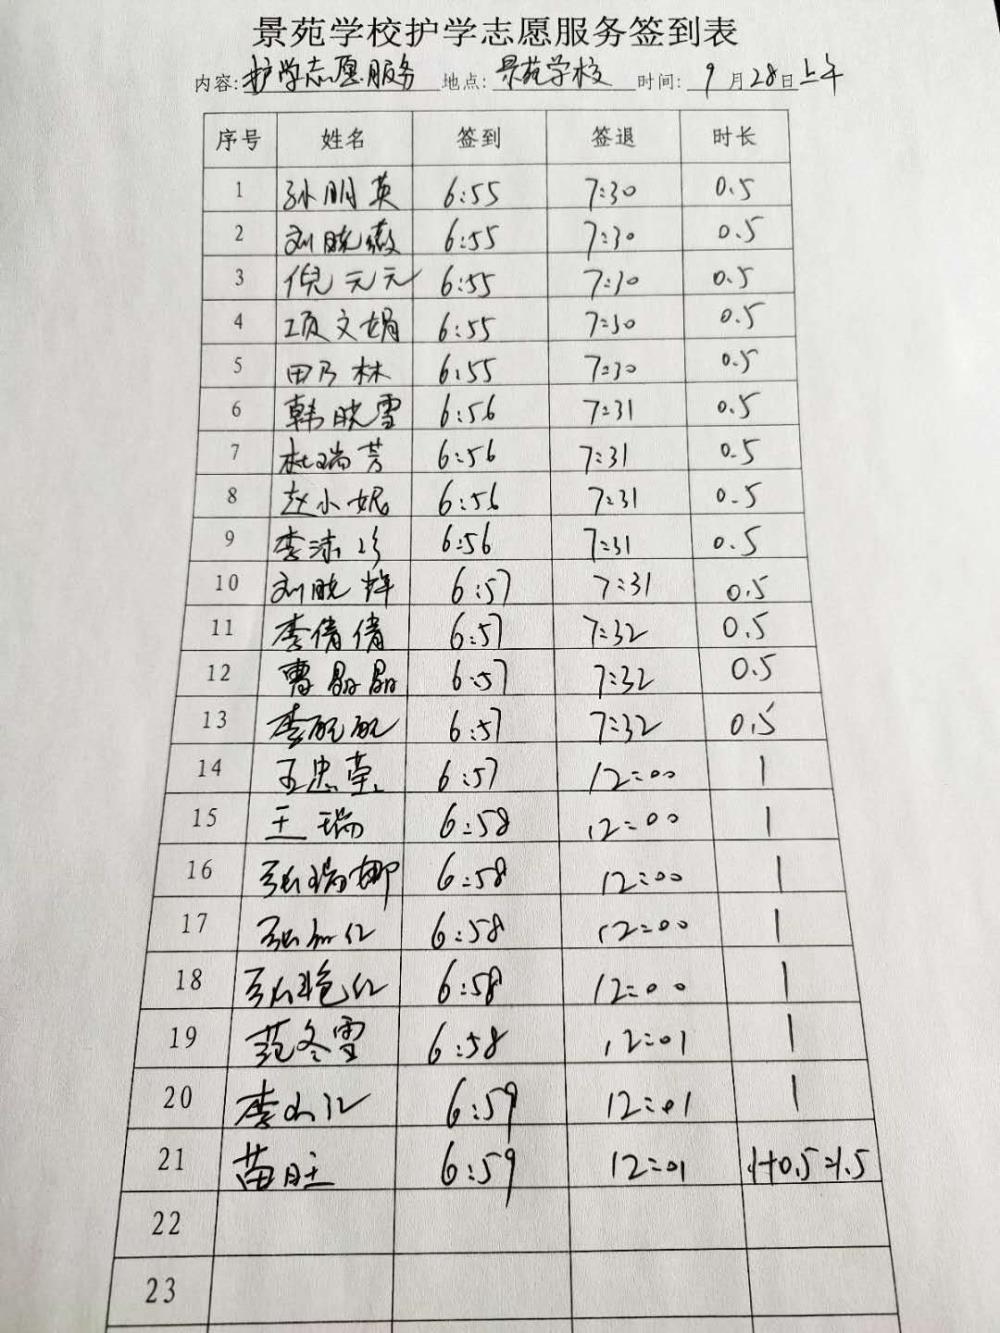 景苑学校护学志愿服务签到表
内容: 护学志愿服务 地点: 景苑学校 时间: 9月28日上午
序号 姓名 签到 签退 时长
1 孙明英 6:55 7:30 0.5
2 刘晓薇 6:55 7:30 0.5
3 倪元元 6:55 7:30 0.5
4 项文娟 6:55 7:30 0.5
5 田乃林 6:55 7:30 0.5
6 韩晓雪 6:56 7:31 0.5
7 杜瑞芳 6:56 7:31 0.5
8 赵小妮 6:56 7:31 0.5
9 李 6:56 7:31 0.5
10 刘晓辉 6:57 7:31 0.5
11 李倩倩 6:57 7:32 0.5
12 曹晶晶 6:57 7:32 0.5
13 李 6:57 7:32 0.5
14 王忠荣 6:57 12:00 1
15 王瑞 6:58 12:00 1
16 张瑞娜 6:58 12:00 1
17 张红 6:58 12:00 1
18 张艳红 6:58 12:00 1
19 范冬雪 6:58 12:01 1
20 李红 6:59 12:01 1
21 苗旺 6:59 12:01 1+0.5=1.5
22
23